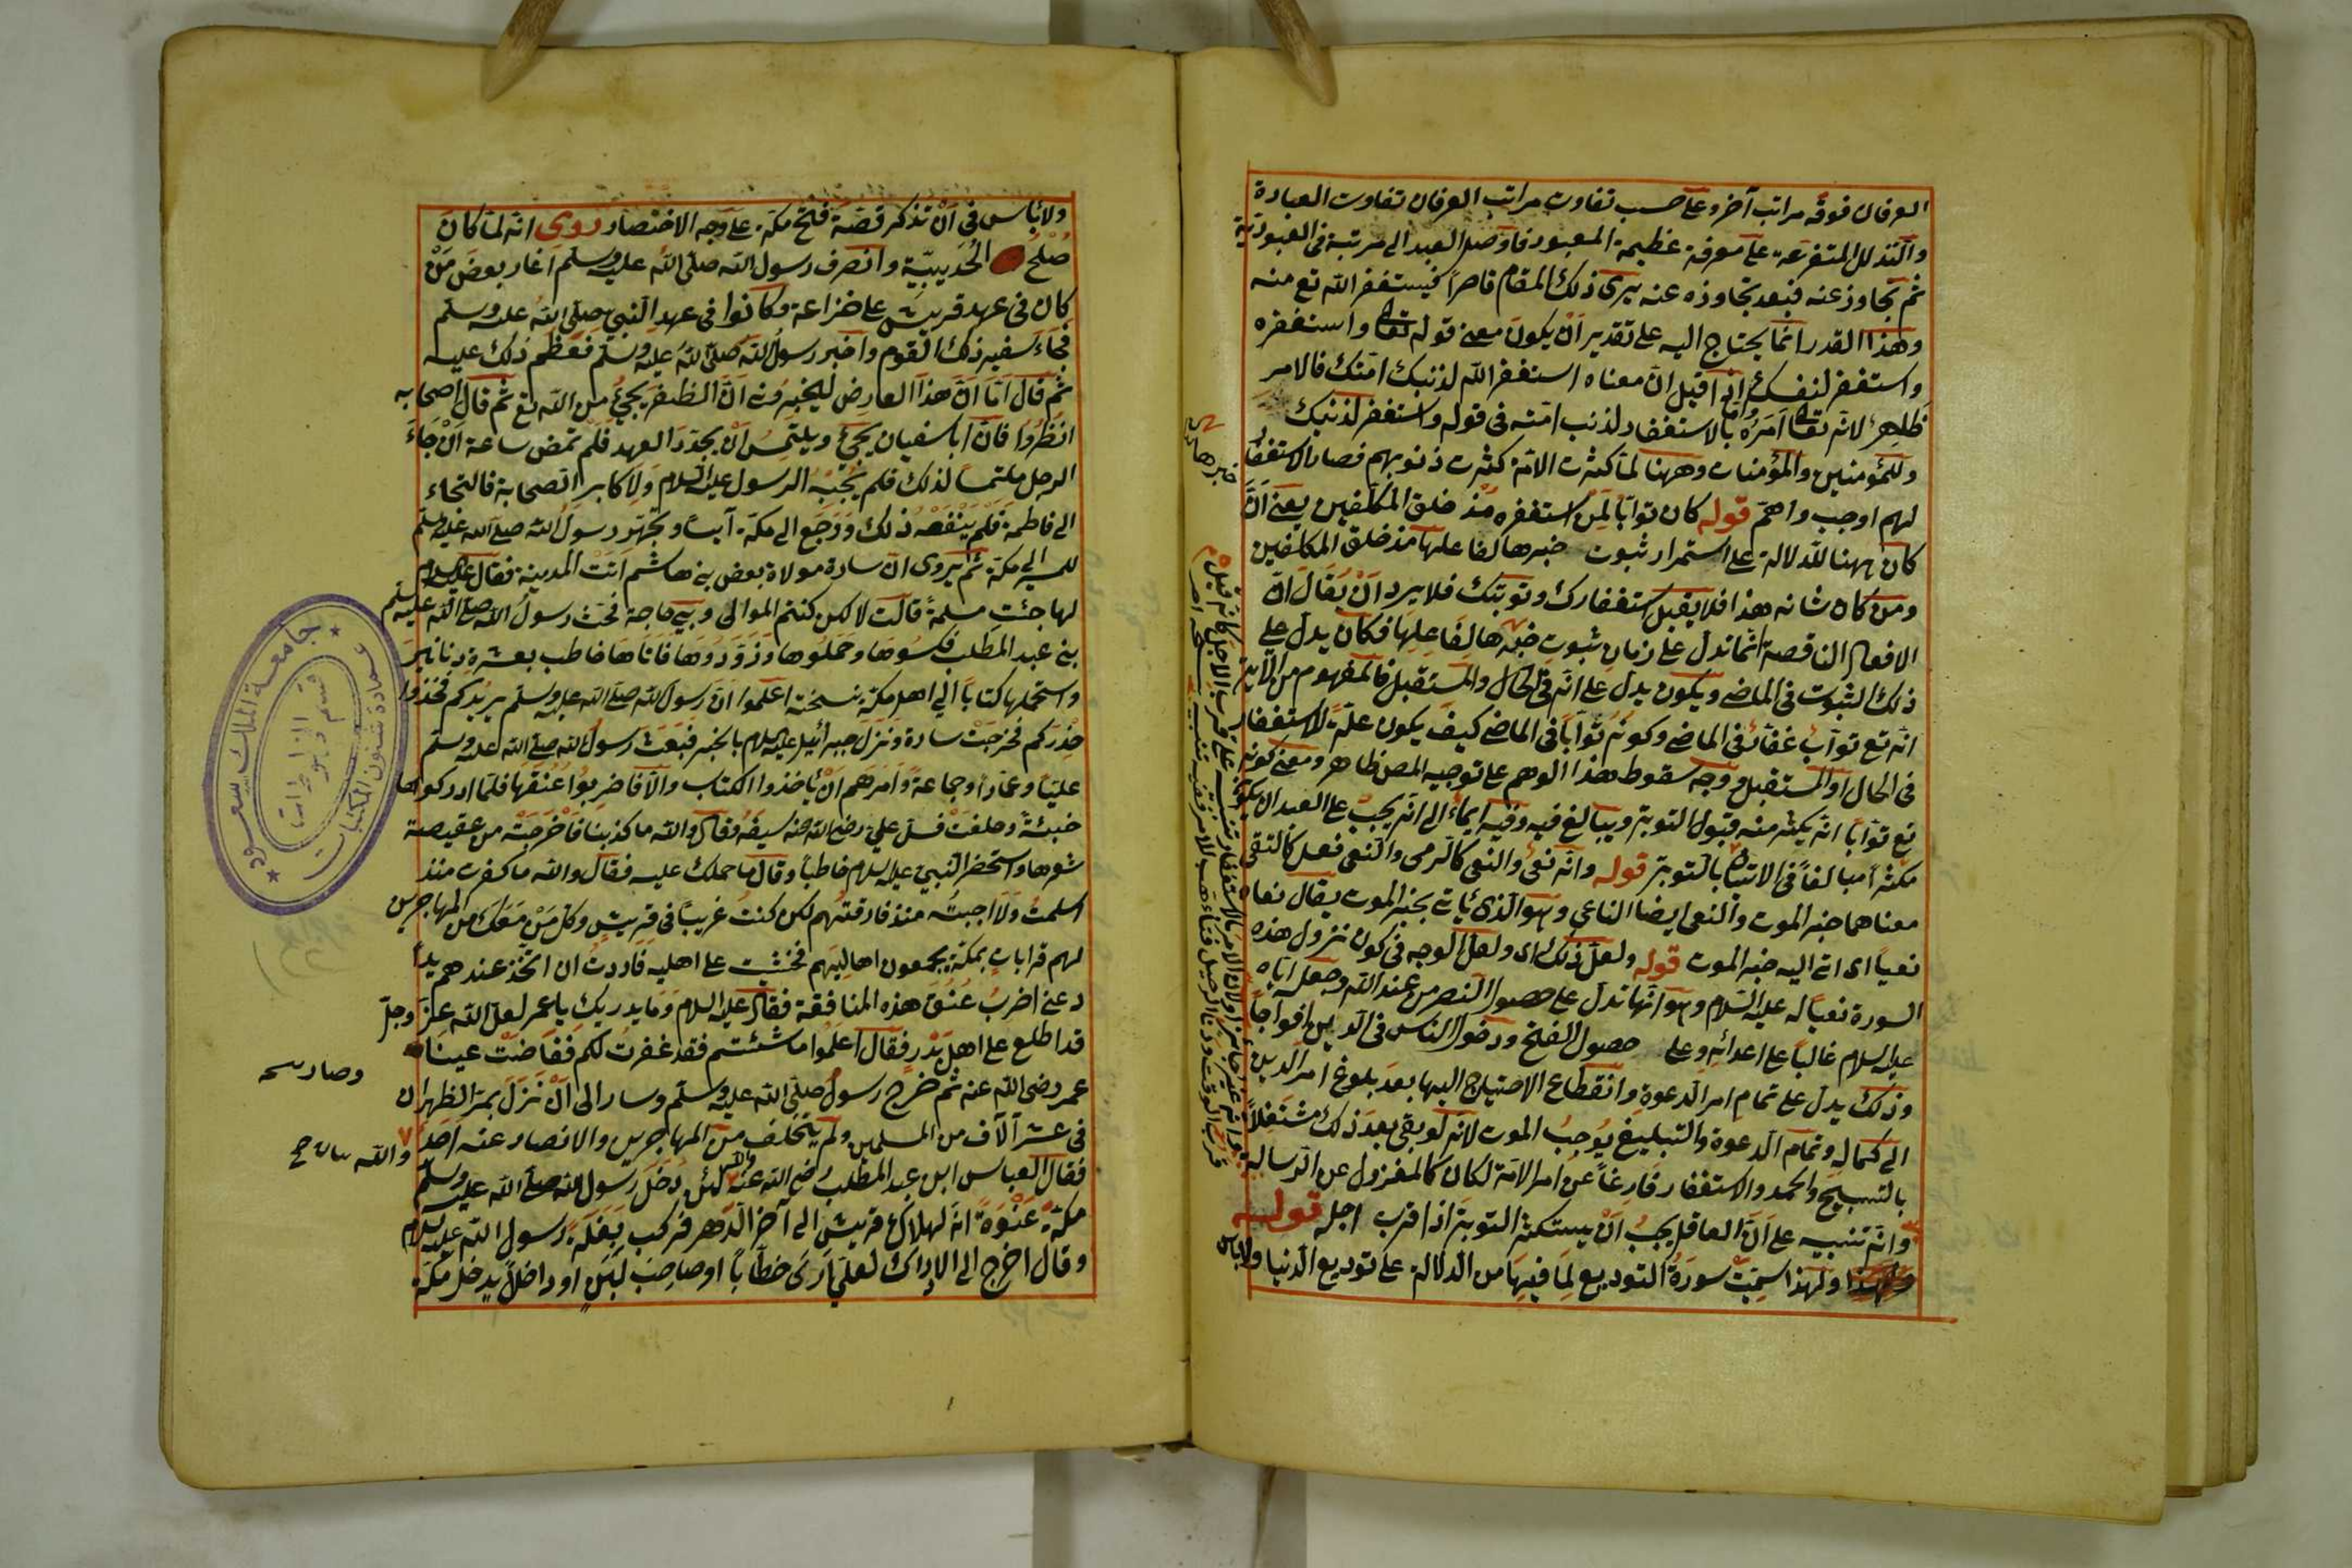 العرفان فوقه مراتب آخر وعلى حسب تفاوت مراتب العرفان تفاوت العبادة
والتذلل المتفرعة على معرفة عظيمة المعبود فاوصل العبد الى مرتبة فى العبودية
ثم تجاوز عنه فبعد تجاوزه عنه يرى ذلك المقام قاصرا فيستغفر الله تع منه
وهذا القدر انما يحتاج اليه على تقدير ان يكون معنى قوله تعا واستغفره
واستغفر لنفسك اذا قيل ان معناه استغفر الله لذنبك امتك فالامر
ظاهر لانه تعا امره بالاستغفار لذنب امته فى قوله واستغفر لذنبك
وللمؤمنين والمؤمنات وههنا لما كثرت الامة كثرت ذنوبهم فصار الاستغفار
لهم اوجب واهم قوله كان توابا لمن استغفره منذ خلق المكلفين يعنى ان
كان ههنا للدلالة على استمرار ثبوت خبرها لفاعلها منذ خلق المكلفين
ومن كان شانه هذا فلا يقبل استغفارك وتوبتك فلا يرد ان يقال ان
الافعال الناقصة انما تدل على زمان ثبوت خبرها لفاعلها فكان يدل على
ذلك الثبوت فى الماضى ويكون يدل على انه فى الحال والمستقبل فالمفهوم من الاية
انه تع تواب غفار فى الماضى وكونه توابا فى الماضى كيف يكون علة للاستغفار
فى الحال او المستقبل ووجه سقوط هذا الوهم على توجيه المص ظاهر ومعنى كونه
تع توابا انه يكثر منه قبول التوبة ويبالغ فيه وفيه ايماء الى انه يجب على العبد ان يكون
مكثرا مبالغا فى الاتيان بالتوبة قوله وانه نعى والنعى كالرمى والنعى فعل كالتقى
معناهما خبر الموت والنعى ايضا الناعى وهو الذى ياتى بخبر الموت يقال نعاه
نعيا اى اتى اليه خبر الموت قوله ولعل ذلك اى ولعل الوجه فى كون نزول هذه
السورة نعيا له عليه السلام وهو انها تدل على حصول النصر من عند الله وجعل اياه
عليه السلام غالبا على اعدائه وعلى حصول الفتح ودخول الناس فى الدين افواجا
وذلك يدل على تمام امر الدعوة وانقطاع الاحتياج اليها بعد بلوغ امر الدين
الى كماله وتمام الدعوة والتبليغ يوجب الموت لانه لو بقى بعد ذلك مشتغلا
بالتسبيح والحمد والاستغفار فارغا عن امر الامة لكان كالمعزول عن الرسالة
وانه تنبيه على ان العاقل يجب ان يستكثر التوبة اذا قرب اجله قوله
ولهذا سميت سورة التوديع لما فيها من الدلالة على توديع الدنيا ولاباس
ولاباس فى ان نذكر قصة فتح مكة على وجه الاختصار روى انه لما كان
صلح الحديبية وانصرف رسول الله صلى الله عليه وسلم اغار بعض من
كان فى عهد قريش على خزاعة وكانوا فى عهد النبى صلى الله عليه وسلم
فجاء سفير ذلك القوم واخبر رسول الله صلى الله عليه وسلم فعظم ذلك عليه
ثم قال اما ان هذا العارض ليخبرنى ان الظفر يجئ من الله تع ثم قال لاصحابه
انظروا فان ابا سفيان يجئ ويلتمس ان يجدد العهد فلم تمض ساعة ان جاء
الرجل ملتمسا لذلك فلم يجبه الرسول عليه السلام ولا كابر الصحابة فالتجاء
الى فاطمة فلم ينفعه ذلك ورجع الى مكة آيسا وتجهز رسول الله صلى الله عليه وسلم
للمسير الى مكة ثم يروى ان سارة مولاة بعض بنى هاشم اتت المدينة فقال عليه السلام
لها جئت مسلمة قالت لا لكن كنتم الموالى وبى حاجة فحث رسول الله صلى الله عليه وسلم
بنى عبد المطلب فكسوها وحملوها وزودوها فاتاها حاطب بعشرة دنانير
واستحملها كتابا الى اهل مكة نسخته اعلموا ان رسول الله صلى الله عليه وسلم يريدكم فخذوا
حذركم فخرجت سارة ونزل جبرائيل عليه السلام بالخبر فبعث رسول الله صلى الله عليه وسلم
عليا وعمارا وجماعة وامرهم ان ياخذوا الكتاب والا فاضربوا عنقها فلما ادركوها
خبئة وحلفت فسل على رضى الله عنه سيفه وقال والله ما كذبنا فاخرجته من عقيصة
شعرها واستحضر النبى عليه السلام حاطبا وقال ما حملك عليه فقال والله ما كفرت منذ
اسلمت ولا احببته منذ فارقتهم لكن كنت غريبا فى قريش وكل من معك من المهاجرين
لهم قرابات بمكة يجمعون اهاليهم فخشيت على اهليه فاردت ان اتخذ عندهم يدا
دعنى اضرب عنق هذه المنافقة فقال عليه السلام وما يدريك يا عمر لعل الله عز وجل
قد اطلع على اهل بدر فقال اعلموا ما شئتم فقد غفرت لكم ففاضت عينا
عمر رضى الله عنه ثم خرج رسول صلى الله عليه وسلم وسار الى ان نزل بمر الظهران
فى عشرآلآف من المسلمين ولم يتخلف من المهاجرين والانصار عنه احد
فقال العباس ابن عبد المطلب رضى الله عنه والله لئن دخل رسول الله صلى الله عليه وسلم
مكة عنوة انه لهلاك قريش الى آخر الدهر فركب بغلة رسول الله عليه السلام
وقال اخرج الى الاراك لعلى ارى خطابا او صاحب لبن او داخلا يدخل مكة
وصار
والله
جامعة الملك سعود
عمادة شئون المكتبات
قسم